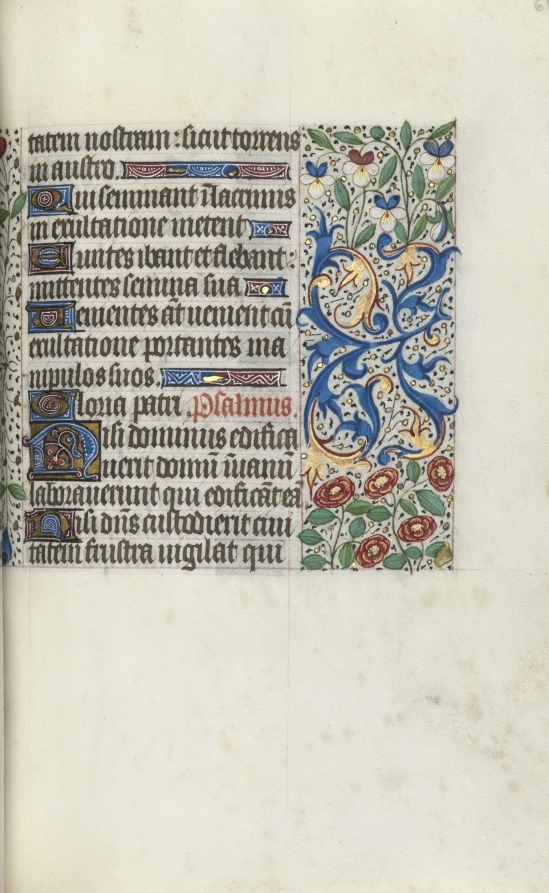 tatem nostram : sicut torrens
in austro.
Qui seminant ĩ lacrimis
in exultatione metent
Euntes ibant et flebant :
mittentes semina sua
Uenientes āt uenient cū
exultatione portantes ma
nipulos suos.
Gloria patri Psalmus.
Nisi dominus edifica
uerit domū ĩ uanū
laborauerunt qui edificāt eā
Nisi dn̄s custodierit ciui
tatem frustra uigilat qui
6